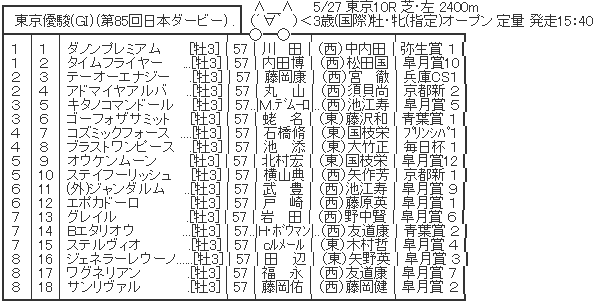 東京優駿(GI)(第85回日本ダービー). (´∀｀) 5/27 東京10R 芝・左 2400m
＜3歳(国際)牡・牝(指定)オープン 定量 発走15:40
1 1 ダノンプレミアム [牡3] 57 川田 (西)中内田 弥生賞 1
1 2 タイムフライヤー ...[牡3] 57 内田博 (西)松田国 皐月賞10
2 3 テーオーエナジー ..[牡3] 57 藤岡康 (西)宮 徹 兵庫CS1
2 4 アドマイヤアルバ ..[牡3] 57 丸山 (西)須貝尚 京都新 2
3 5 キタノコマンドール [牡3] 57 M.デムーロ (西)池江寿 皐月賞 5
3 6 ゴーフォザサミット [牡3] 57 蛯名 (東)藤沢和 青葉賞 1
4 7 コズミックフォース ....[牡3] 57 石橋脩 (東)国枝栄 プリンシパ1
4 8 ブラストワンピース [牡3] 57 池添 (東)大竹正 毎日杯 1
5 9 オウケンムーン [牡3] 57 北村宏 (東)国枝栄 皐月賞12
5 10 ステイフーリッシュ [牡3] 57 横山典 (西)矢作芳 京都新 1
6 11 (外)ジャンダルム [牡3] 57 武豊 (西)池江寿 皐月賞 9
6 12 エポカドーロ [牡3] 57 戸崎 (西)藤原英 皐月賞 1
7 13 グレイル [牡3] 57 岩田 (西)野中賢 皐月賞 6
7 14 Bエタリオウ [牡3] 57 H・ボウマン (西)友道康 青葉賞 2
7 15 ステルヴィオ [牡3] 57 C.ルメール (東)木村哲 皐月賞 4
8 16 ジェネラーレウーノ ....[牡3] 57 田辺 (東)矢野英 皐月賞 3
8 17 ワグネリアン [牡3] 57 福永 (西)友道康 皐月賞 7
8 18 サンリヴァル [牡3] 57 藤岡佑 (西)藤岡健 皐月賞 2